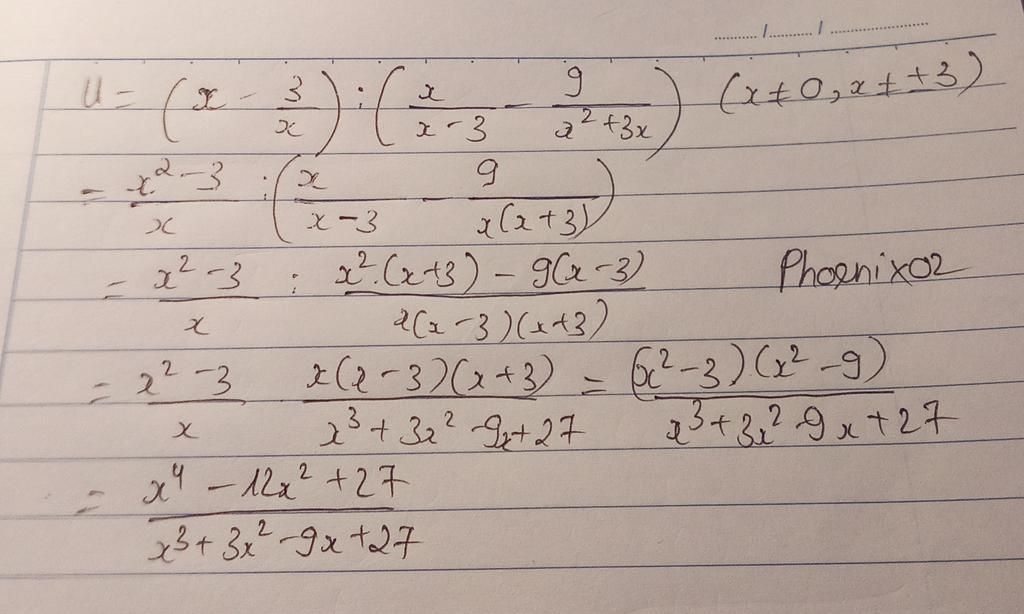 U = (x - 3/x) : (x/(x-3) - 9/(x²+3x)) (x≠0, x≠±3)
= (x²-3)/x : (x/(x-3) - 9/(x(x+3)))
= (x²-3)/x : (x².(x+3) - 9(x-3))/(x(x-3)(x+3)) Phoenix02
= (x²-3)/x x(x-3)(x+3)/(x³+3x²-9x+27) = (x²-3)(x²-9)/(x³+3x²-9x+27)
= (x⁴-12x²+27)/(x³+3x²-9x+27)